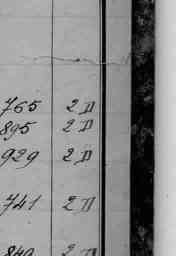 765 2 D
895 2 D
929 2 D
741 2 D
840 2 D